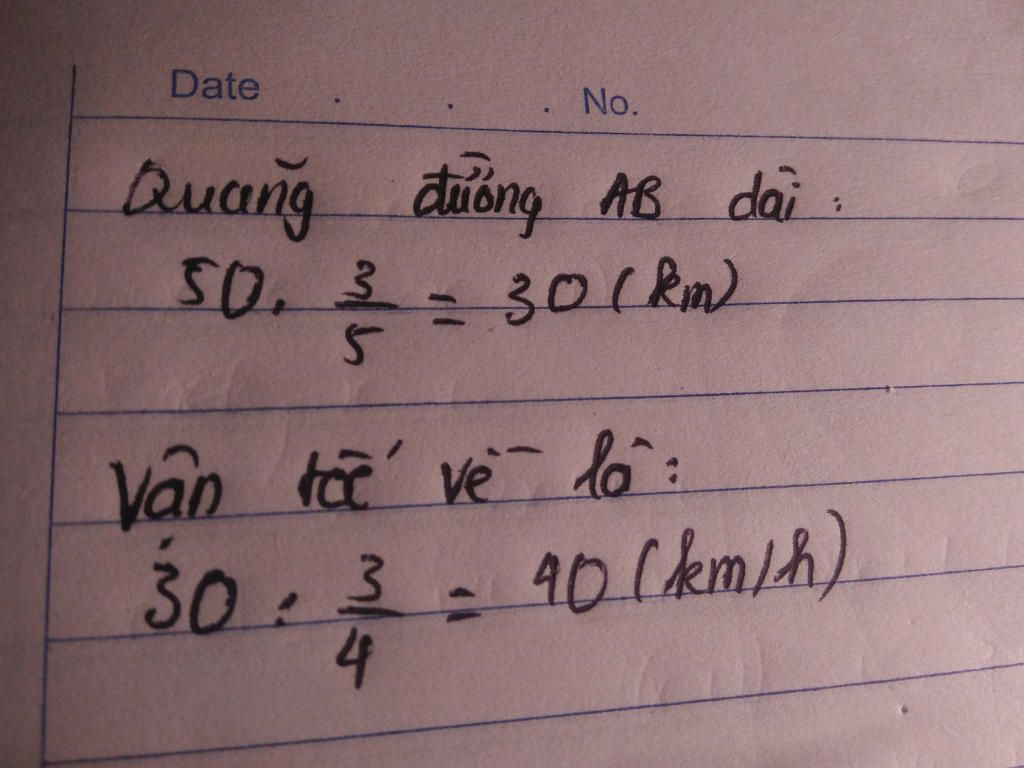 Date . . . No.
Quãng đường AB dài :
50 . 3/5 = 30 (km)
Vận tốc về là :
30 : 3/4 = 40 (km/h)